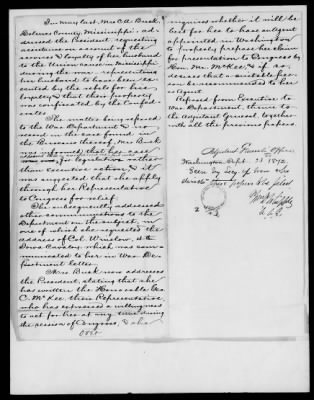 In May last, Mrs C. A. Buck,
Holmes County, Mississippi, ad-
dressed the President requesting
assistance on account of the
services & loyalty of her husband
to the Union cause in Mississippi
during the war, representing
her husband to have been exe-
cuted by the rebels for his
loyalty, & that their property
was confiscated by the Confed-
erates.
The matter being referred
to the War Department & no
record in the case found in
the Bureaus thereof, Mrs Buck
was informed that her case
was one for legislation rather
than Executive action, & it
was suggested that she apply
through her Representative
to Congress for relief.
She subsequently addressed
other communications to the
Department on the subject, in
one of which she requested the
address of Col. Winslow, 4th
Iowa Cavalry which was com-
municated to her in War De-
partment letter
Mrs. Buck now addresses
the President, stating that she
has written the Honorable Geo.
C. McKee, their Representative
who has expressed a willingness
to act for her at any time during
the session of Congress, & she
over
inquires whether it will be
best for her to have an agent
appointed in Washington
to properly prepare her claim
for presentation to Congress by
Hon. Mr. McKee, & if so,
desires that a suitable per-
son be recommended to her
as agent.
Referred from Executive to
War Department, thence to
the Adjutant General, together
with all the previous papers.
Adjutant General's Office
Washington Sept. 23 1872.
Seen by Secy of War who
directs that papers be filed